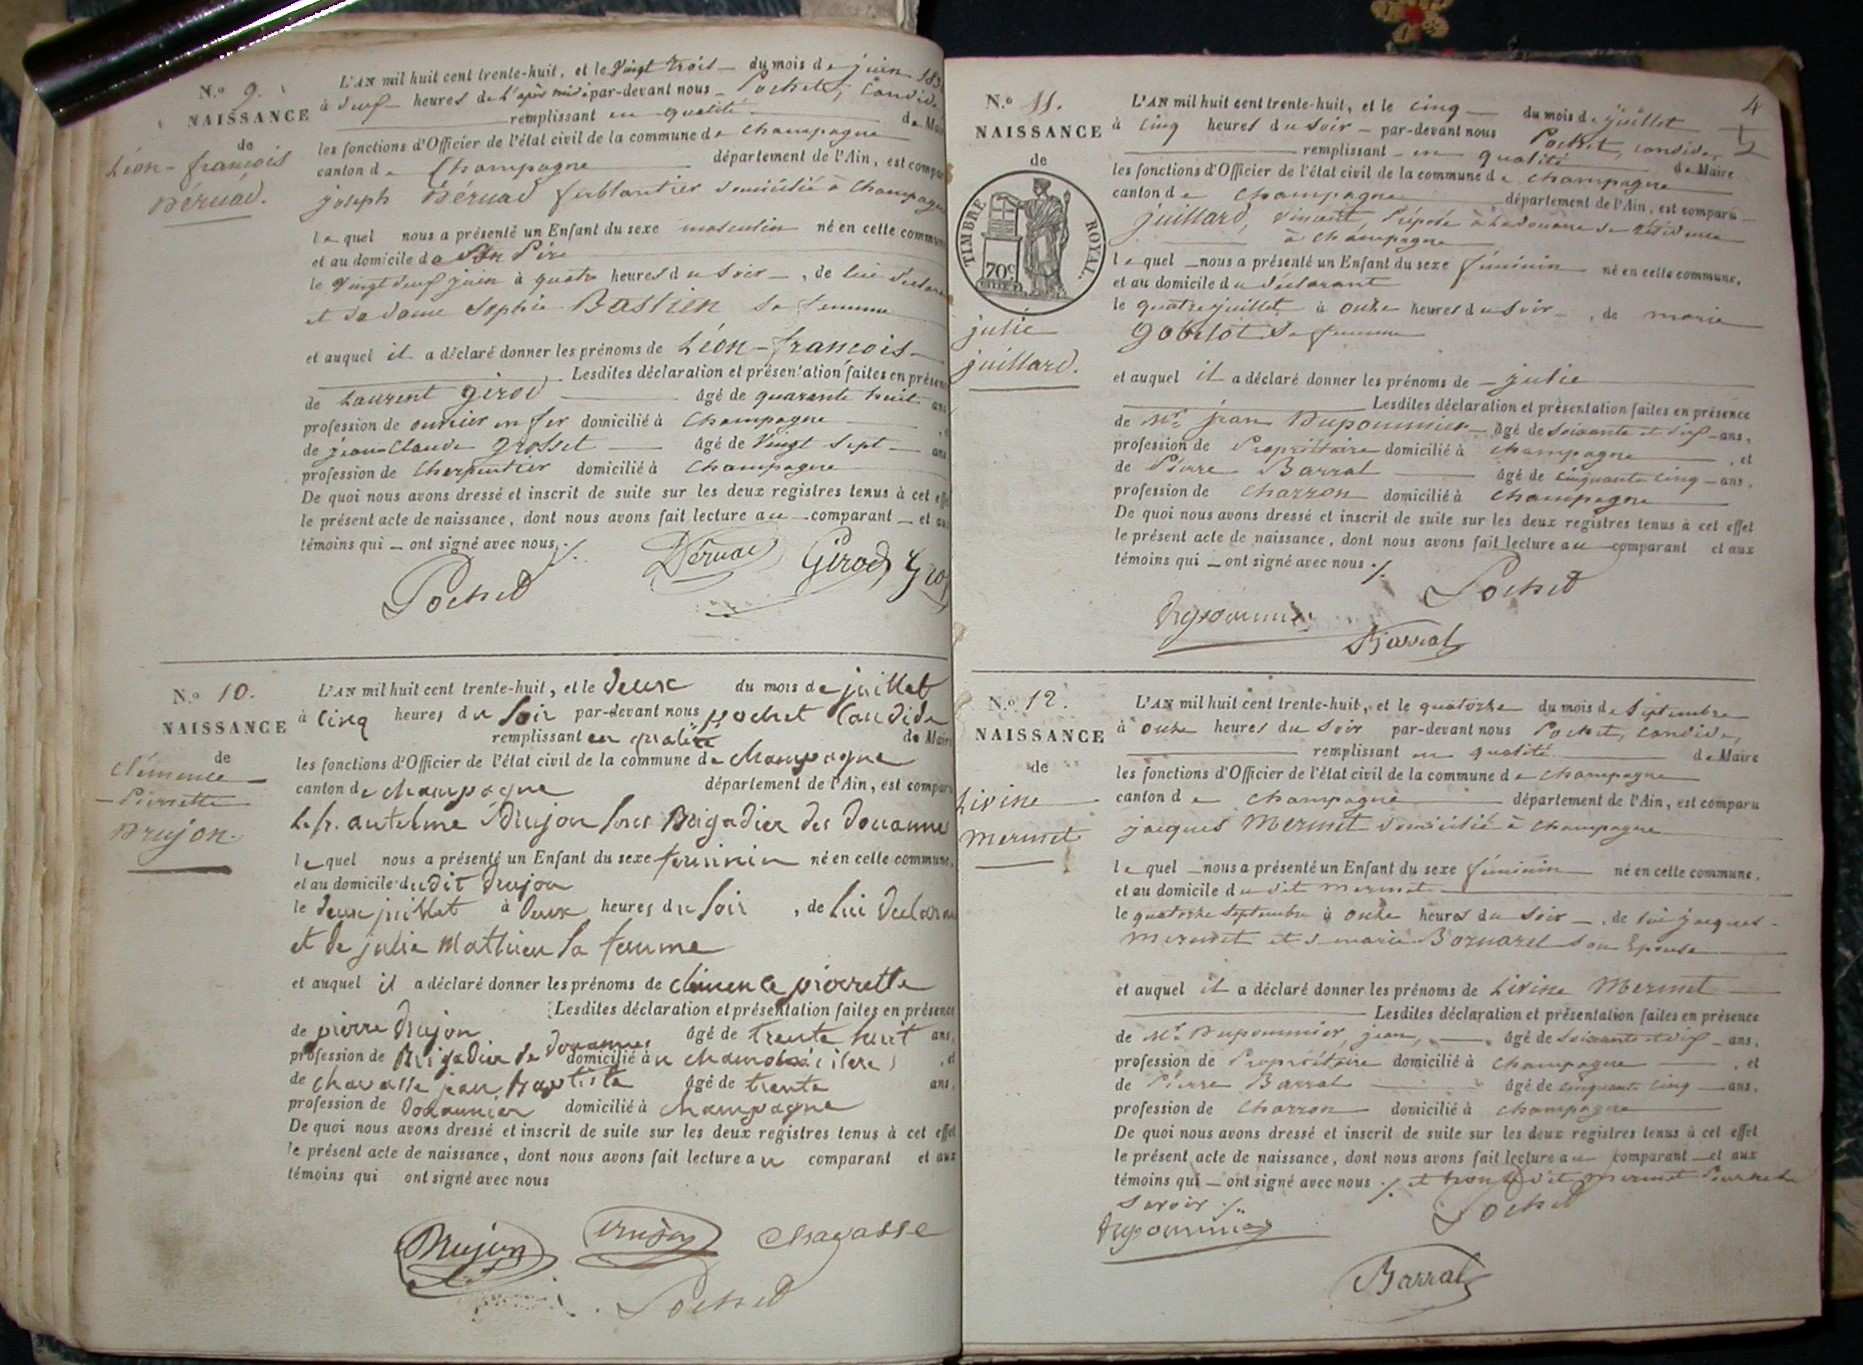 N.o 9.
NAISSANCE
de
Léon-françois
Béruad.
L'AN mil huit cent trente-huit, et le Vingt trois du mois de juin
à neuf heures de l'après midi par-devant nous Pochet, Candide
remplissant en qualité de Maire
les fonctions d'Officier de l'état civil de la commune de Champagne
canton de Champagne département de l'Ain, est compar
joseph Béruad ferblantier domicilié à Champagne
lequel nous a présenté un Enfant du sexe masculin né en cette commune
et au domicile de Son Père
le juin à quatre heures du Soir, de lui déclar
et da dame Sophie Bastien sa femme
et auquel il a déclaré donner les prénoms de Léon-françois
Lesdites déclaration et présentation faites en présen
de Laurent girod âgé de quarante huit ans
profession de ouvrier en fer domicilié à Champagne
de jean Claude grosset âgé de Vingt Sept ans
profession de Cherpentier domicilié à Champagne
De quoi nous avons dressé et inscrit de suite sur les deux registres tenus à cet effe
le présent acte de naissance, dont nous avons fait lecture au comparant et au
témoins qui ont signé avec nous ./.
Béruad Girod Gros
Pochet
N.o 10.
NAISSANCE
de
Clémence
Pierrette
Drujon.
L'AN mil huit cent trente-huit, et le deux du mois de juillet
à Cinq heures du Soir par-devant nous pochet Candide
remplissant en qualité de Maire
les fonctions d'Officier de l'état civil de la commune de Champagne
canton de champagne département de l'Ain, est comparu
Le sr. antelme Drujon sous Brigadier des douannes
lequel nous a présenté un Enfant du sexe feminin né en cette commune,
et au domicile dudit drujon
le deux juillet à deux heures du Soir, de lui declaran
et de julie Mathieu sa femme
et auquel il a déclaré donner les prénoms de clémence pierrette
Lesdites déclaration et présentation faites en présence
de pierre drujon âgé de trente huit ans,
profession de Brigadier de douannes domicilié à (isere), et
de chavasse jean baptiste âgé de trente ans,
profession de douannier domicilié à champagne
De quoi nous avons dressé et inscrit de suite sur les deux registres tenus à cet effet
le présent acte de naissance, dont nous avons fait lecture au comparant et aux
témoins qui ont signé avec nous
Drujon drujon chavasse
Pochet
4
N.o 11.
NAISSANCE
de
TIMBRE ROYAL.
70c
julie
juillard.
L'AN mil huit cent trente-huit, et le cinq du mois de juillet
à cinq heures du soir par-devant nous Pochet, candide,
remplissant en qualité de Maire
les fonctions d'Officier de l'état civil de la commune de champagne
canton de champagne département de l'Ain, est comparu
juillard, vincent, Préposé à la douane de résidence
à champagne
lequel nous a présenté un Enfant du sexe féminin né en cette commune,
et au domicile du déclarant
le quatre juillet à onze heures du soir, de marie
gobelot Sa femme
et auquel il a déclaré donner les prénoms de julie
Lesdites déclaration et présentation faites en présence
de Mr jean Dupommier âgé de soixante et dix ans,
profession de Propriétaire domicilié à champagne, et
de Pierre Barral âgé de cinquante cinq ans,
profession de charron domicilié à champagne
De quoi nous avons dressé et inscrit de suite sur les deux registres tenus à cet effet
le présent acte de naissance, dont nous avons fait lecture au comparant et aux
témoins qui ont signé avec nous ./.
Pochet
Dupommier
Barral
N.o 12.
NAISSANCE
de
Livine
mermet
L'AN mil huit cent trente-huit, et le quatorze du mois de Septembre
à onze heures du soir par-devant nous Pochet, candide,
remplissant en qualité de Maire
les fonctions d'Officier de l'état civil de la commune de champagne
canton de champagne département de l'Ain, est comparu
jacques mermet domicilié à champagne
lequel nous a présenté un Enfant du sexe féminin né en cette commune,
et au domicile du dit mermet
le quatorze Septembre à onze heures du Soir, de lui jacques
mermet et d marie Bornarel son Epouse
et auquel il a déclaré donner les prénoms de Livine Mermet
Lesdites déclaration et présentation faites en présence
de Mr Dupommier, jean, âgé de soixante et dix ans,
profession de Propriétaire domicilié à champagne, et
de Pierre Barral âgé de cinquante cinq ans,
profession de charron domicilié à champagne
De quoi nous avons dressé et inscrit de suite sur les deux registres tenus à cet effet
le présent acte de naissance, dont nous avons fait lecture au comparant et aux
témoins qui ont signé avec nous ./. et non le dit mermet
Savoir ./.
Pochet
Dupommier
Barral